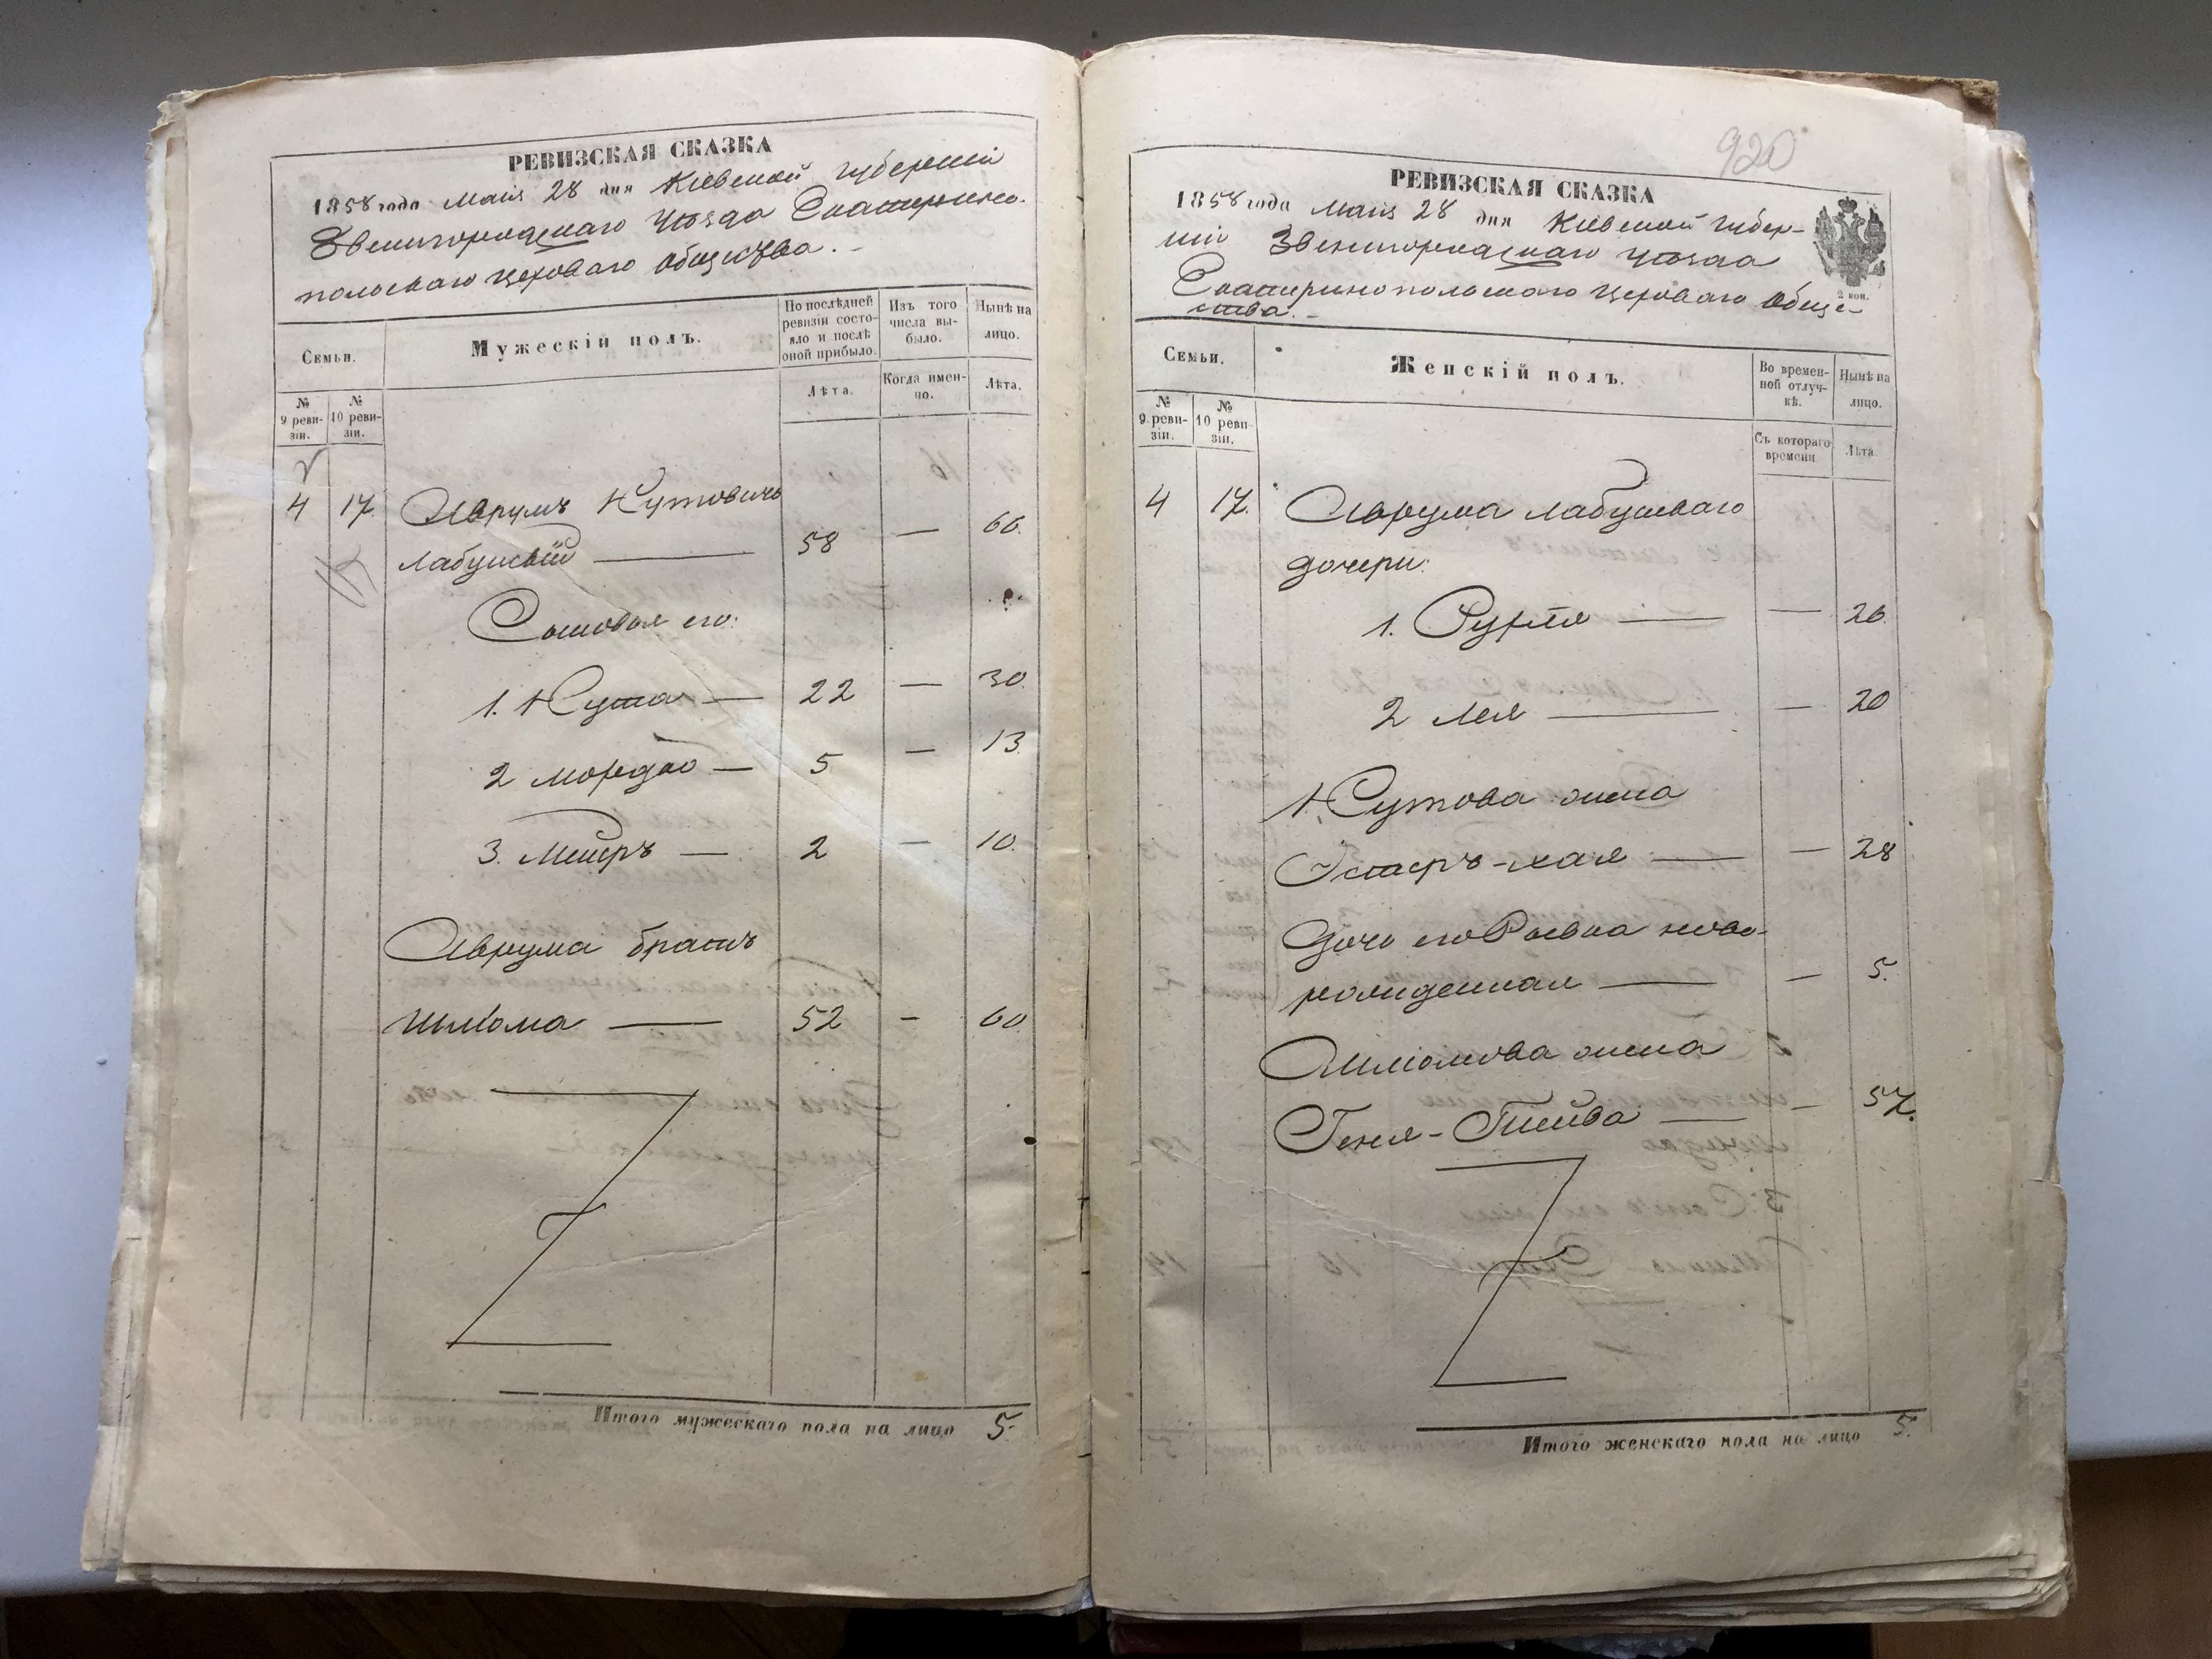 РЕВИЗСКАЯ СКАЗКА
1858 года Маія 28 дня Кіевской Губерніи
Звенигородскаго Уѣзда Екатерино-
польскаго Цеховаго Общества.
Семьи.
Мужескій полъ.
По послѣдней ревизіи состо-яло и послѣ оной прибыло.
Изъ того числа вы-было.
Нынѣ на лицо.
№ 9 реви-зіи.
№ 10 реви-зіи.
Лѣта.
Когда имен-но.
Лѣта.
4 17. Аврумъ Нутовичъ
Лабунскій — 58 — 66.
Сыновья его:
1. Нута — 22 — 30.
2 Мордко — 5 — 13.
3. Мейеръ — 2 — 10.
Аврума братъ
Шліома — 52 — 60
Итого мужескаго пола на лицо 5.
920
РЕВИЗСКАЯ СКАЗКА
1858 года Маія 28 дня Кіевской Губер-
ніи Звенигородскаго Уѣзда
Екатеринопольскаго Цеховаго Обще-
ства.-
2 коп.
Семьи.
Женскій полъ.
Во времен-ной отлуч-кѣ.
Нынѣ на лицо.
№ 9 реви-зіи.
№ 10 реви-зіи.
Съ котораго времени
Лѣта
4 17. Аврума Лабунскаго
дочери:
1. Рухля — — 26
2 Лея — — 20
Нутова жена
Эстеръ-Хая — — 28
Дочь его Ривка ново-
рожденная — — 5.
Шліомова жена
Геня- — — 57.
Итого женскаго пола на лицо 5.